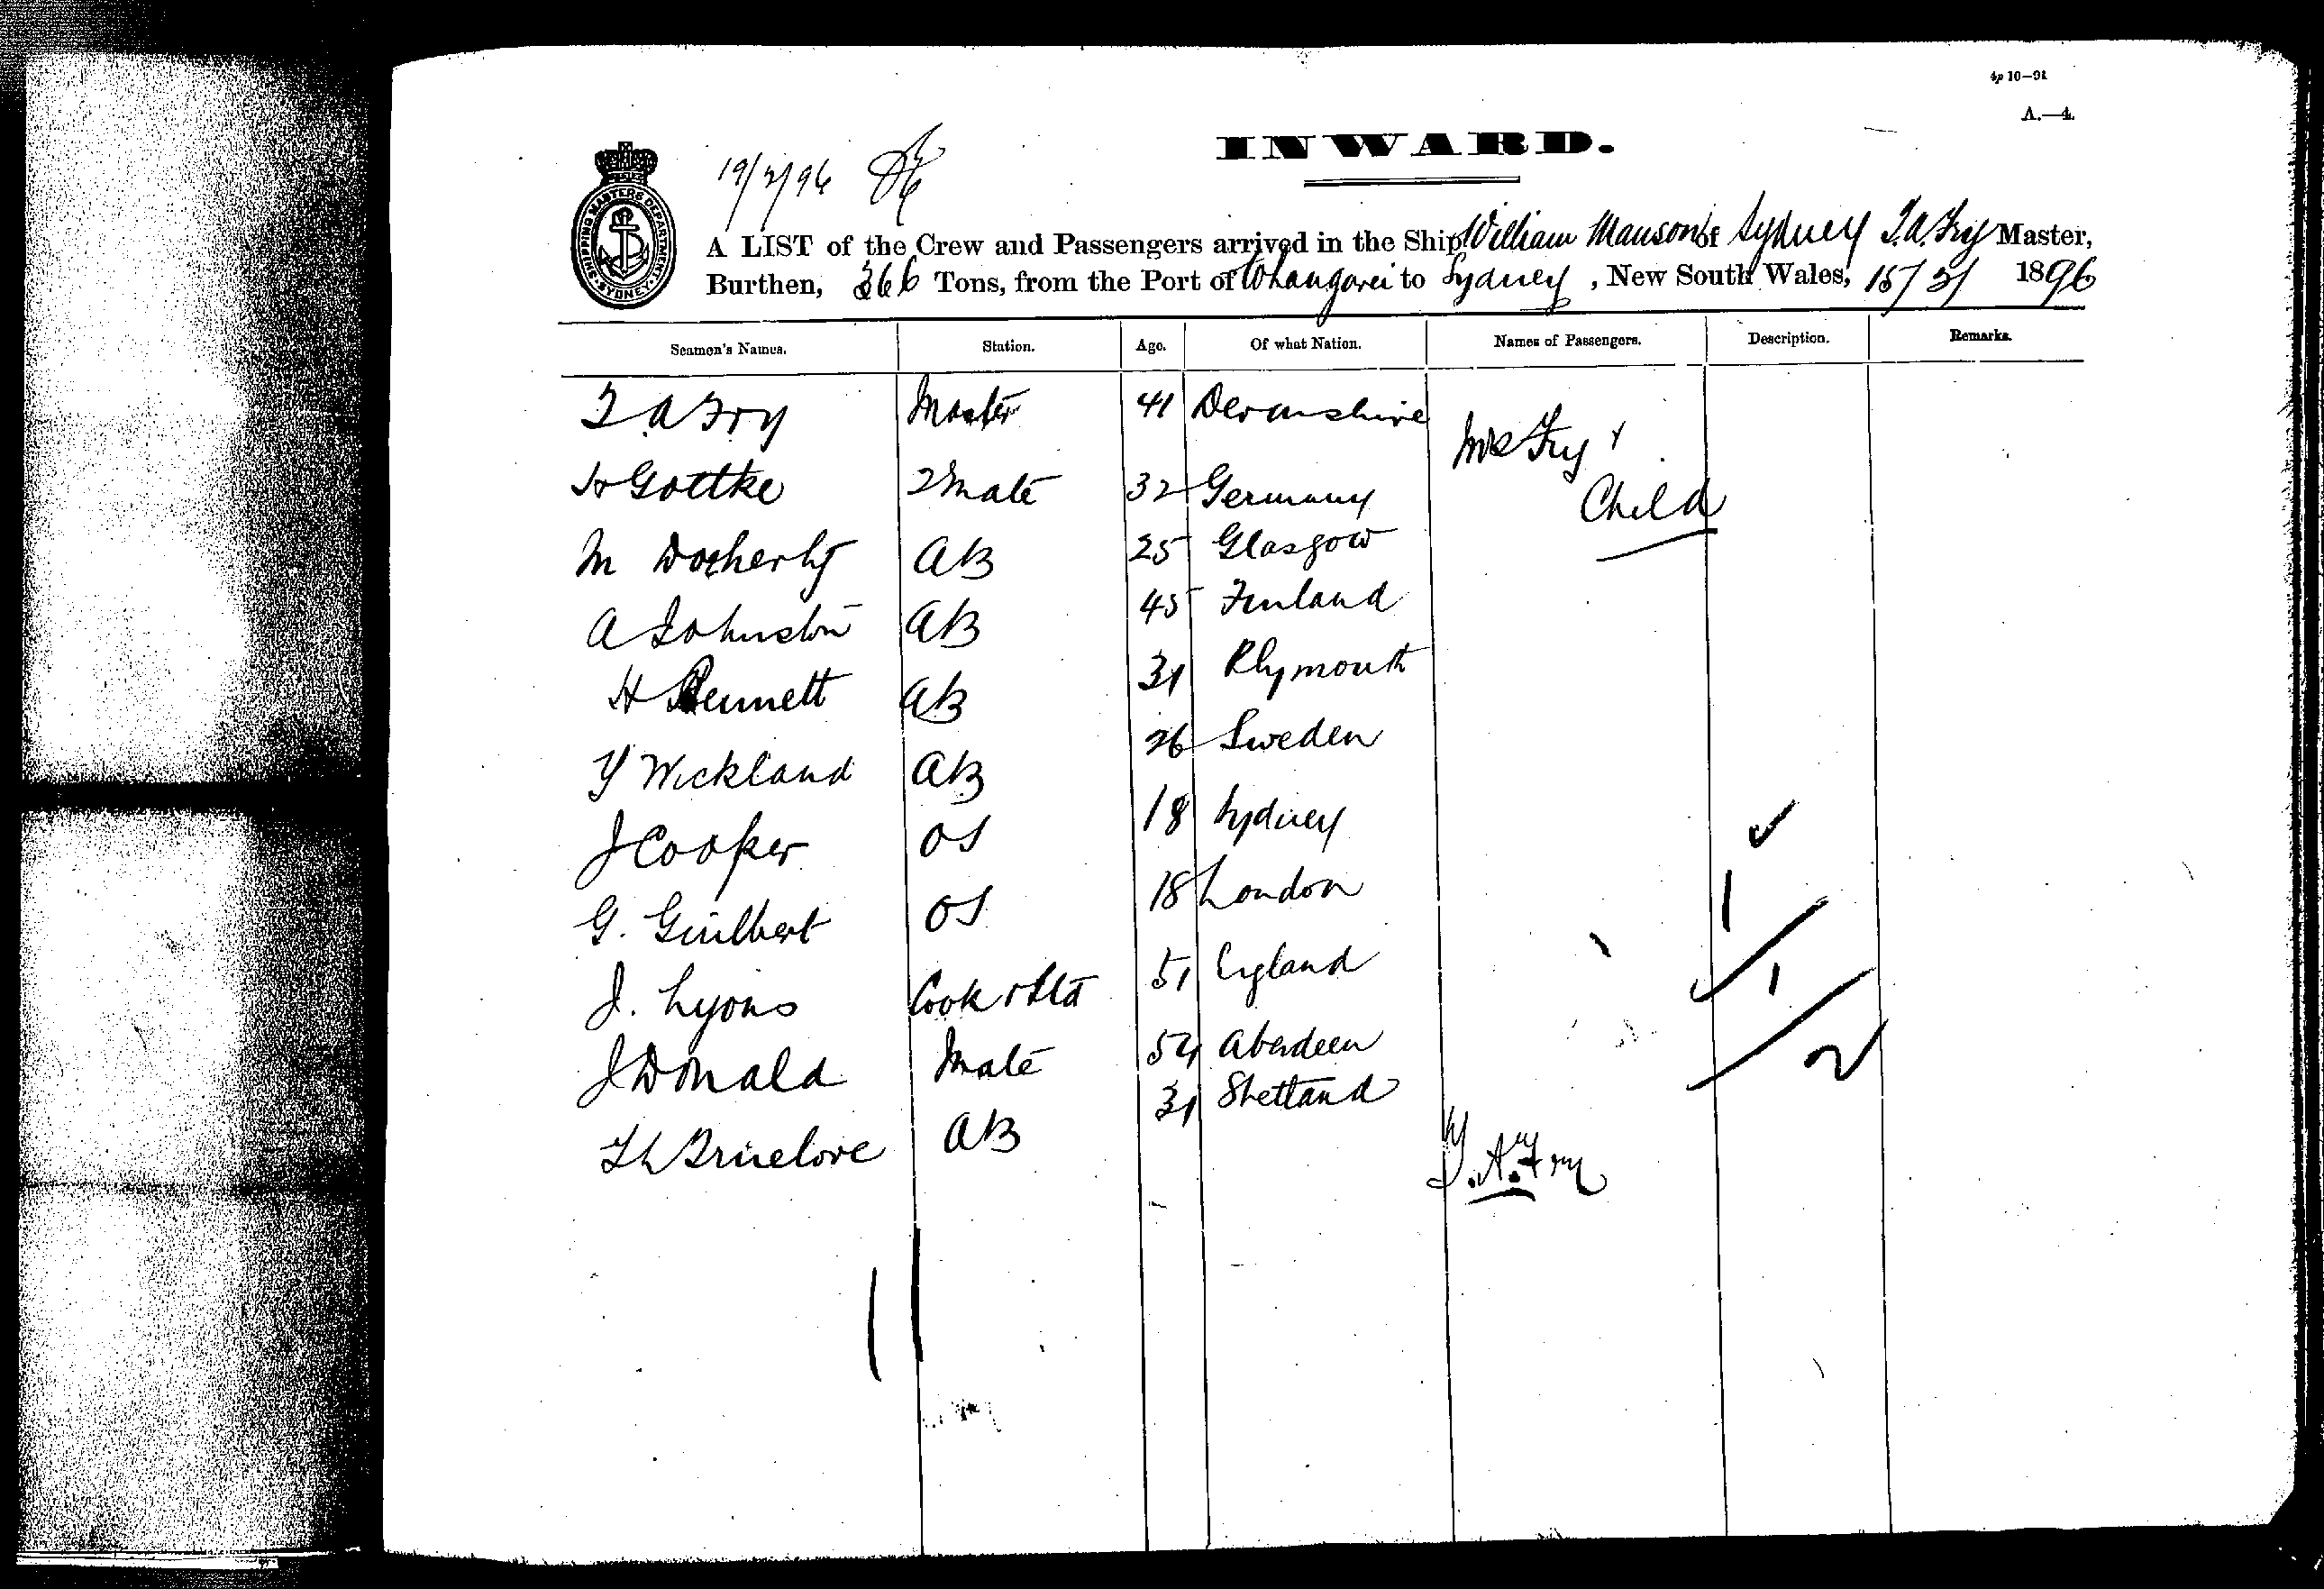 4p 10—91
A.—4.
INWARD.
19/2/96
SHIPPING MASTERS DEPARTMENT
SYDNEY
A LIST of the Crew and Passengers arrived in the Ship William Manson of Sydney T.A. Fry Master,
Burthen, 366 Tons, from the Port of Whangarei to Sydney, New South Wales, 15/2/ 1896
Seamen's Names. Station. Age. Of what Nation. Names of Passengers. Description. Remarks.
T A Fry Master 41 Devonshire Mrs Fry &
H Gottke 2 Mate 32 Germany Child
M Docherty AB 25 Glasgow
A Johnston AB 45 Finland
H Bennett AB 31 Plymouth
Y Wickland AB 26 Sweden
J Cooper OS 18 Sydney
G. Guilbert OS 18 London 1
J. Lyons Cook & Std 51 England 1
J Donald Mate 54 Aberdeen 2
Th Truelove AB 31 Shetland
T.A. Fry
11